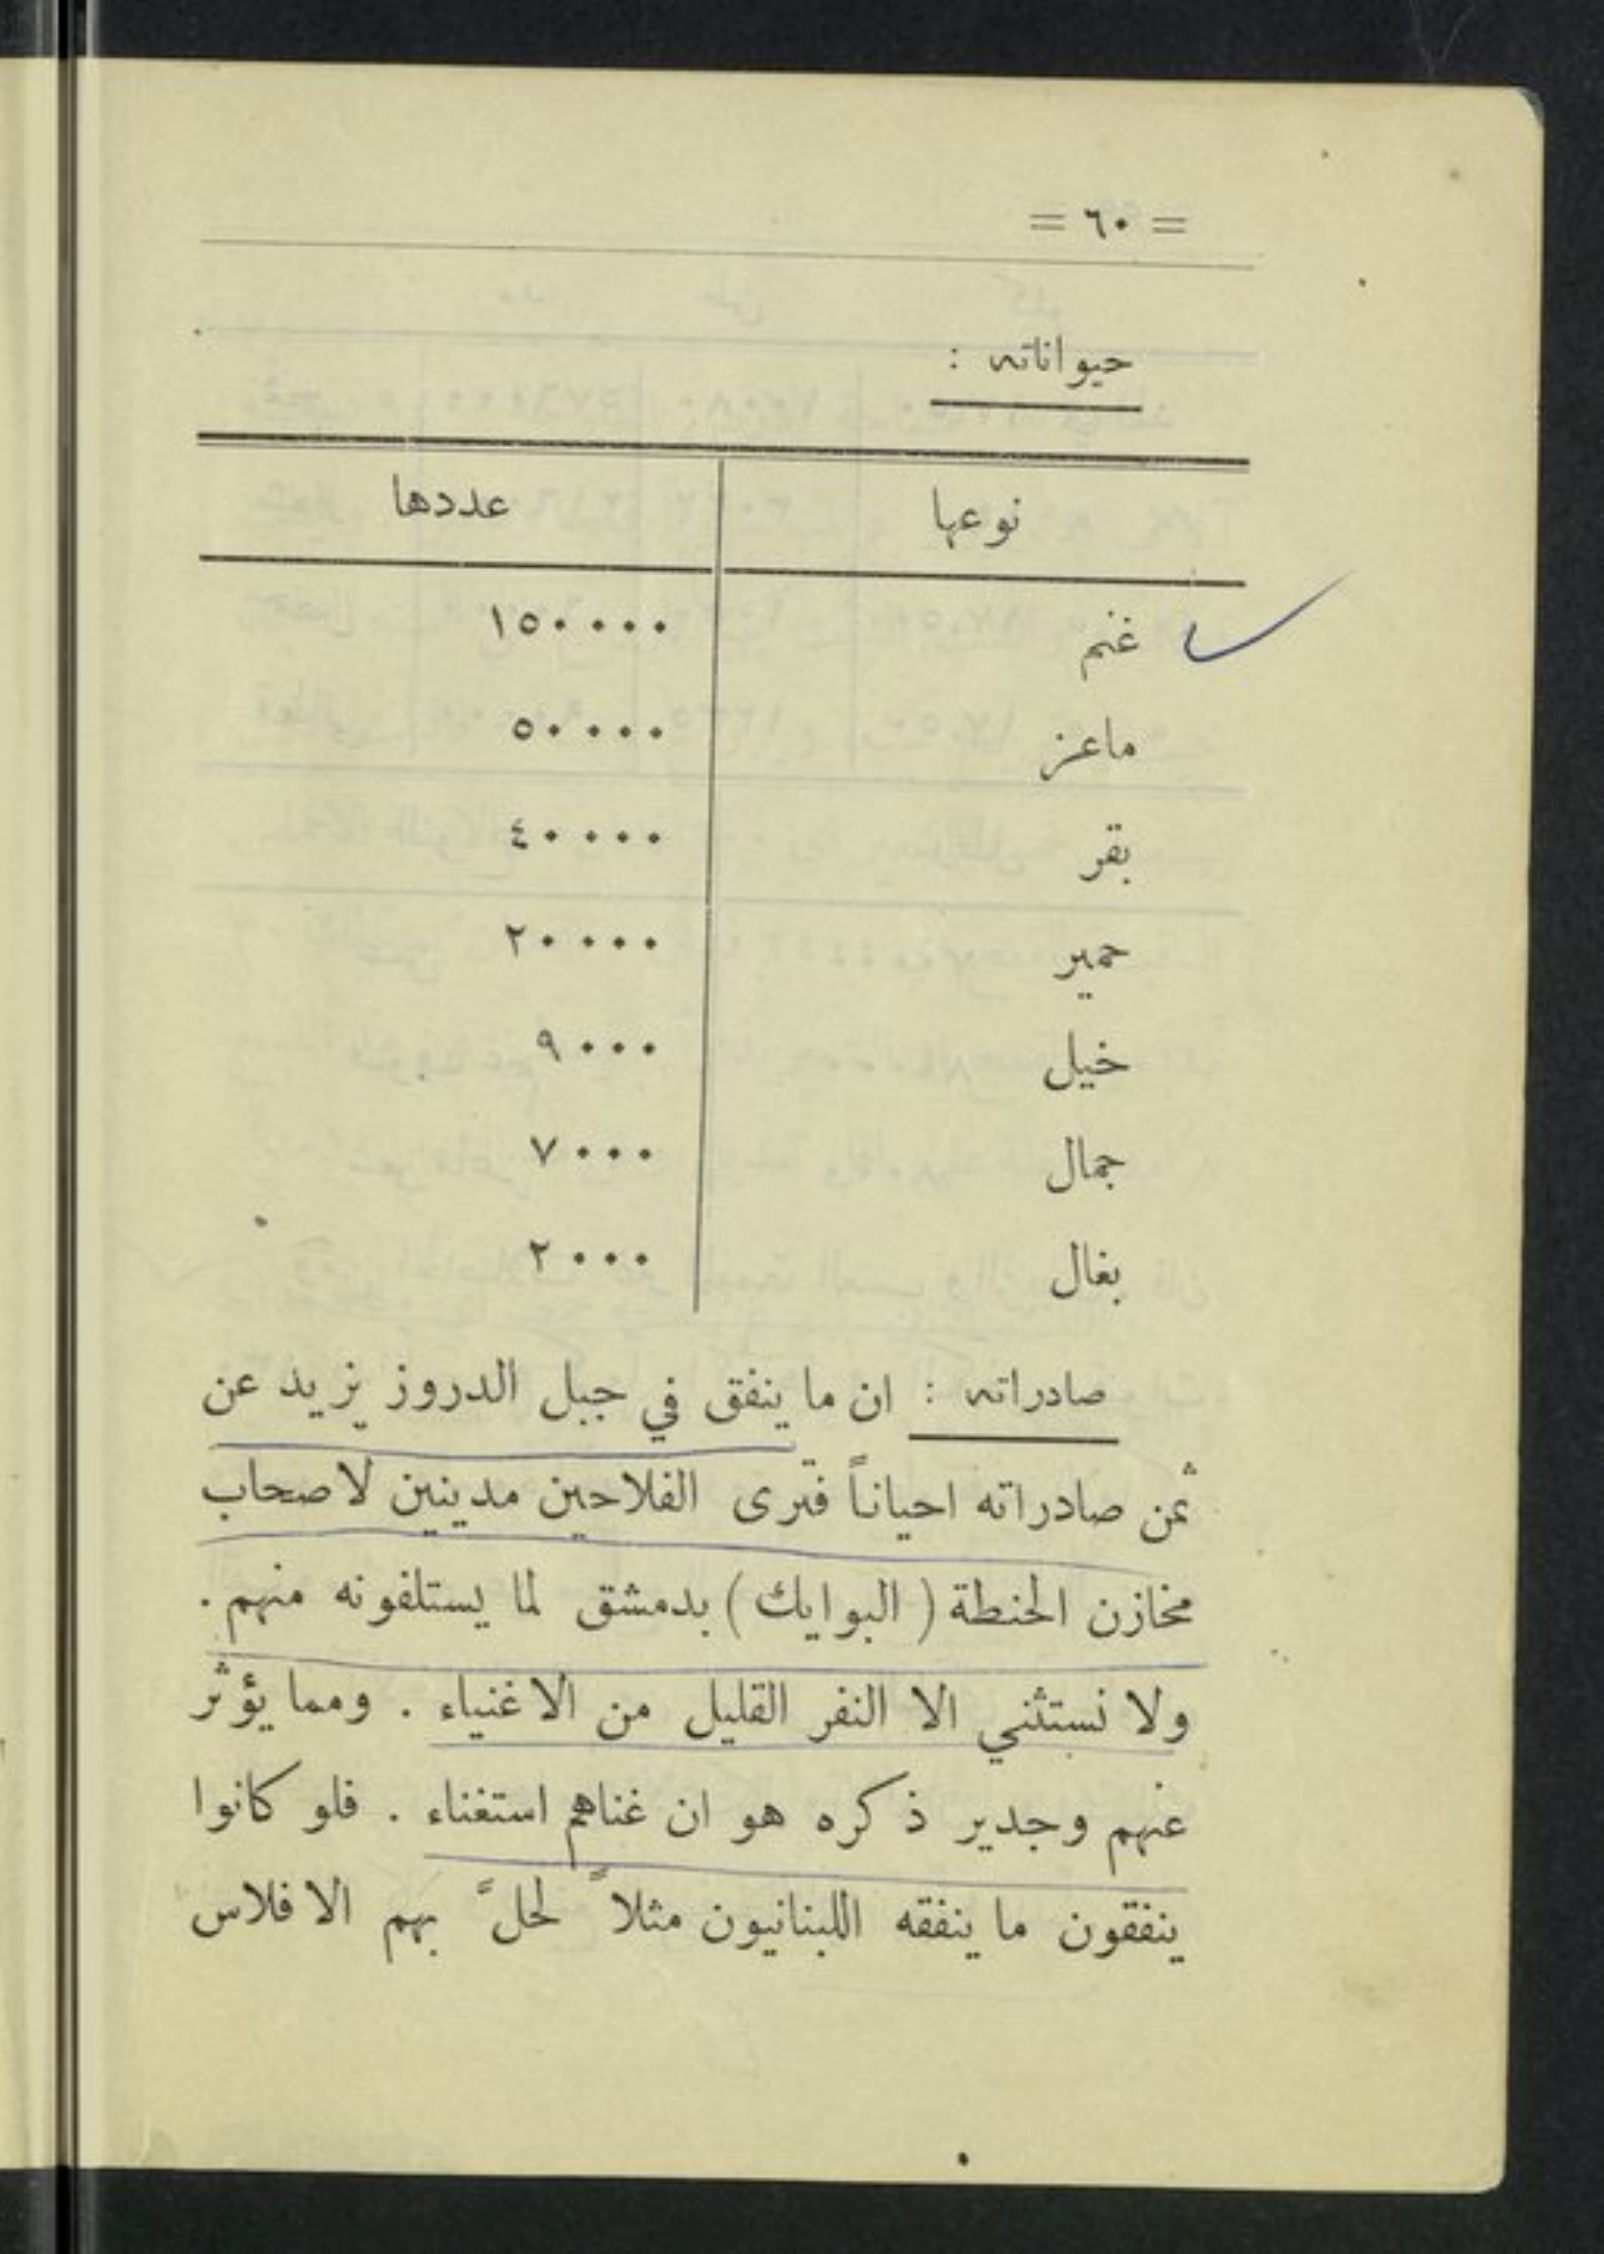 = ٦٠ =
حيواناته :
نوعها عددها
غنم ١٥٠٠٠٠
ماعز ٥٠٠٠٠
بقر ٤٠٠٠٠
حمير ٢٠٠٠٠
خيل ٩٠٠٠
جمال ٧٠٠٠
بغال ٢٠٠٠
صادراته : ان ما ينفق في جبل الدروز يزيد عن
ثمن صادراته احياناً فترى الفلاحين مدينين لاصحاب
مخازن الحنطة ( البوايك ) بدمشق لما يستلفونه منهم .
ولا نستثني الا النفر القليل من الاغنياء . ومما يؤثر
عنهم وجدير ذكره هو ان غناهم استغناء . فلو كانوا
ينفقون ما ينفقه اللبنانيون مثلاً لحلّ بهم الافلاس